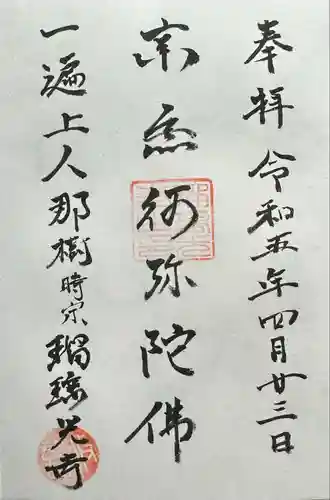 奉拝 令和五年四月廿三日
南無阿弥陀佛
一遍上人那樹時宗瑠璃光寺